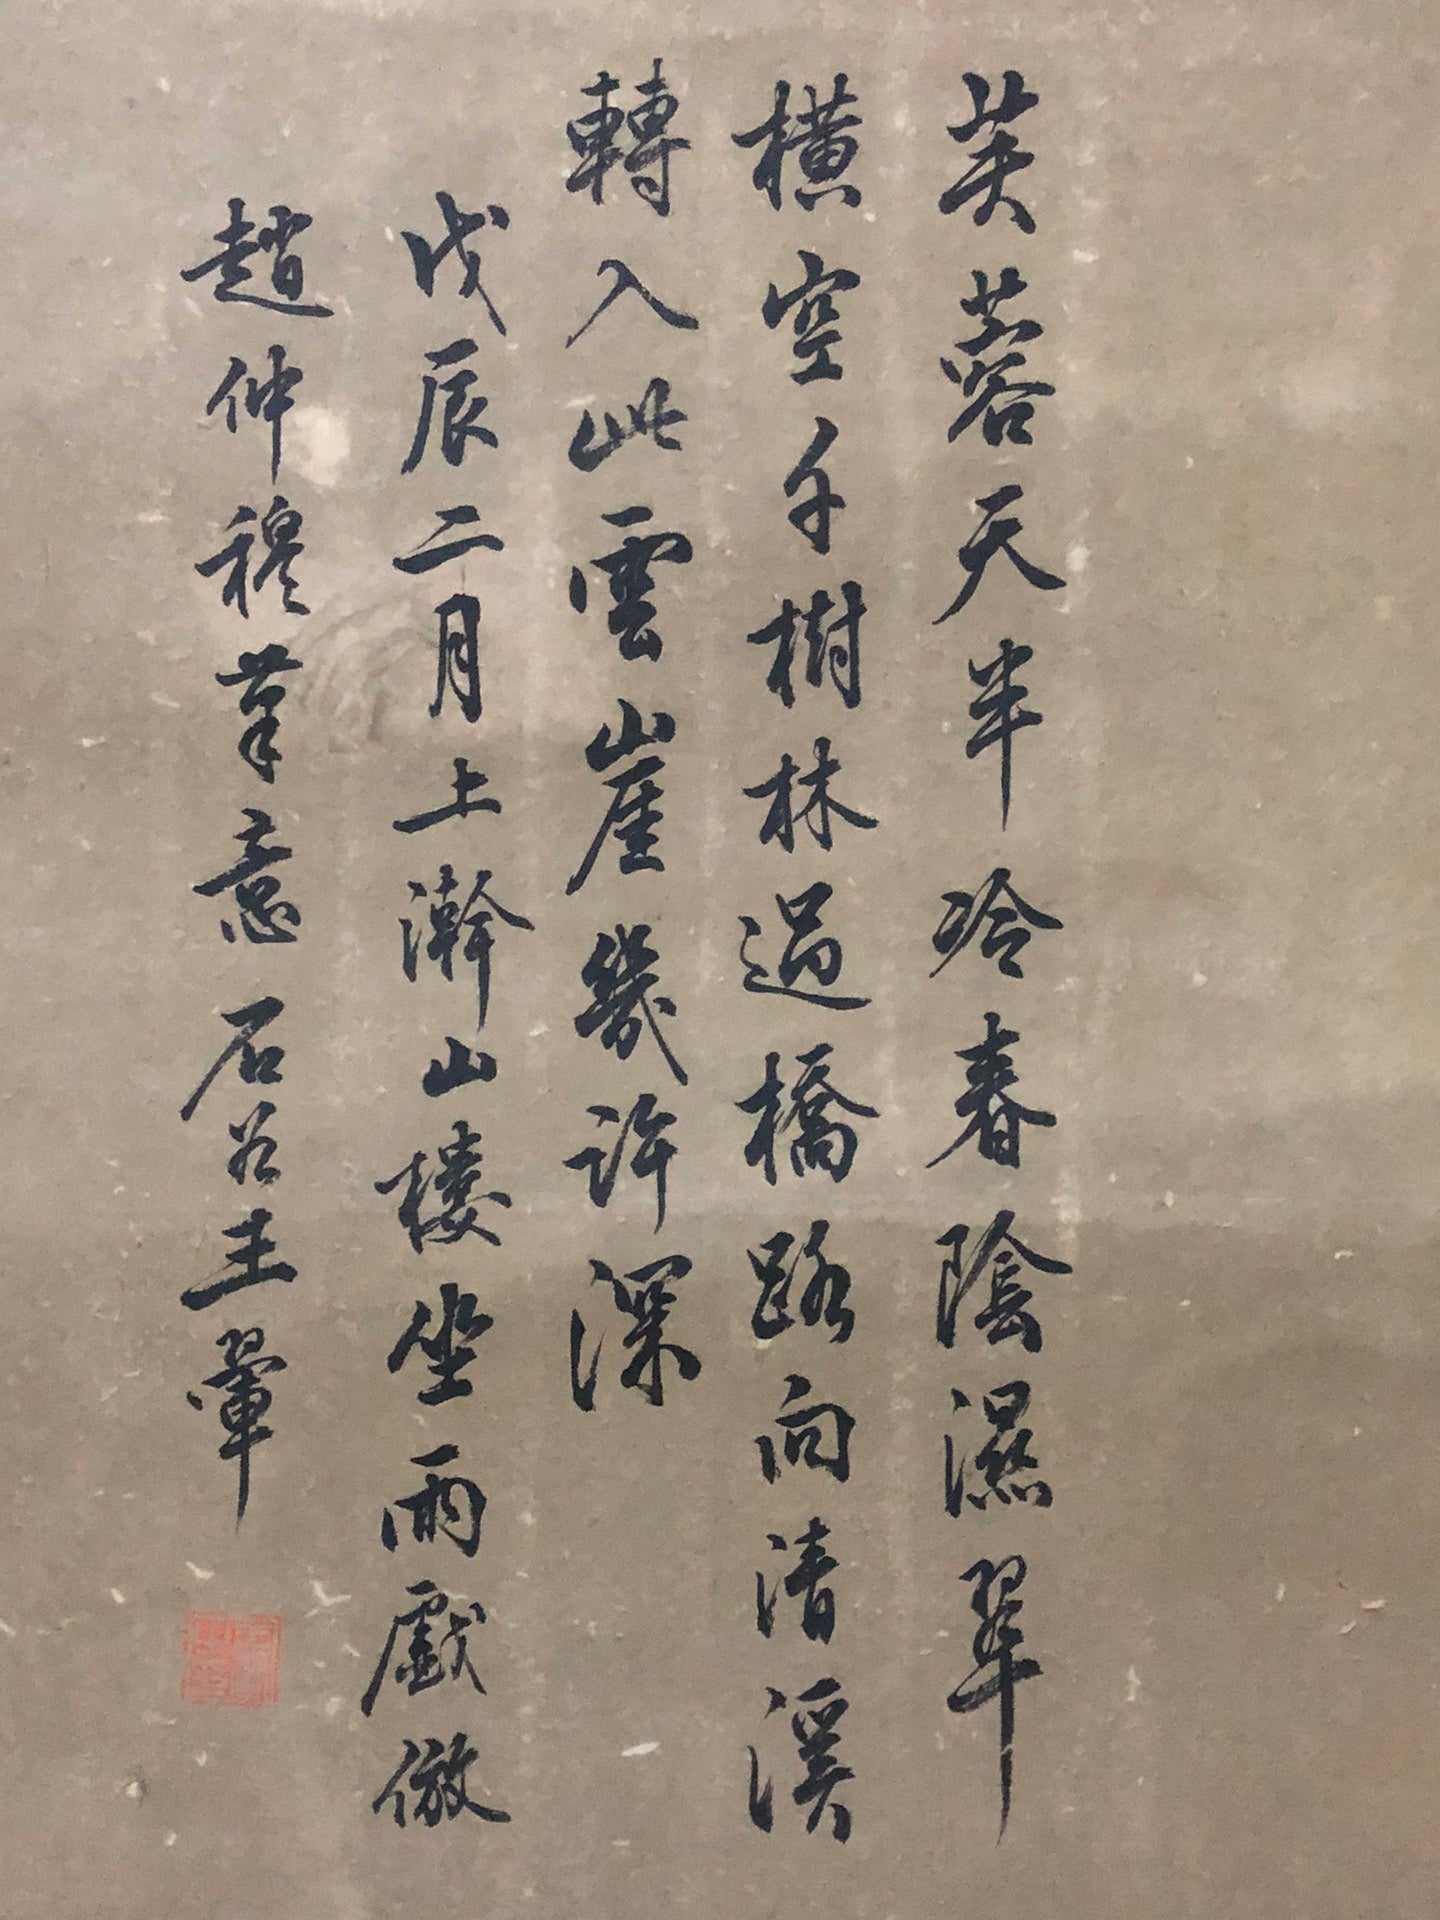 芙蓉天半冷春陰濕翠
橫空千樹林過橋路向清溪
轉入此雲崖幾許深
戊辰二月上澣山樓坐雨戲倣
趙仲穆筆意石谷王翬